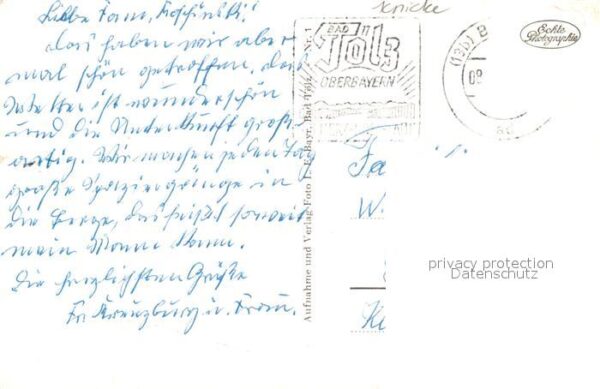 Liebe Fam.
das haben wir aber
mal schön getroffen, das
Wetter ist wunderschön
und die Unterkunft groß-
artig. Wir machen jeden Tag
große Spaziergänge in
die Berge, das heißt soweit
mein Mann kann.
Die herzlichsten Grüße
Kreuzburg u. Frau.
Knicke
BAD
Tölz
OBERBAYERN
Echte
Photographie
(13b) B
09
Aufnahme und Verlag Foto Bayr. Bad Tölz Nr. 1
Fa
W.
K
privacy protection
Datenschutz